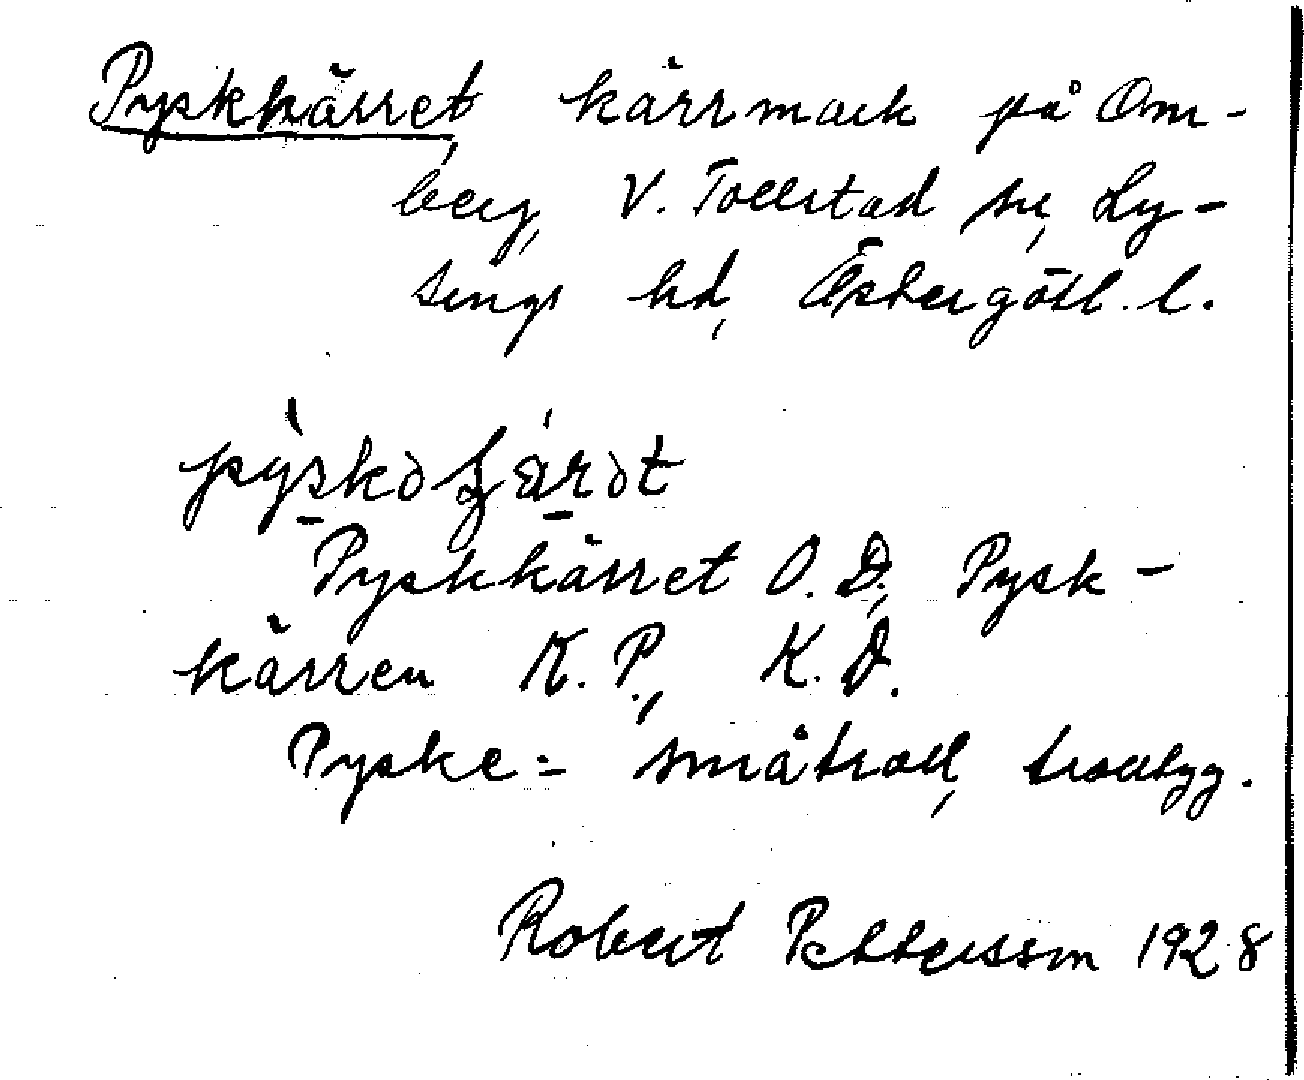 Pyskkärret, kärrmark på Om-
berg, V. Tollstad sn, Ly-
sings hd, Östergötl. l.
Pyskkärret O. D., Pysk-
kärren K. P., K. D.
Pyske = småtroll, trolltyg.
Robert Pettersson 1928